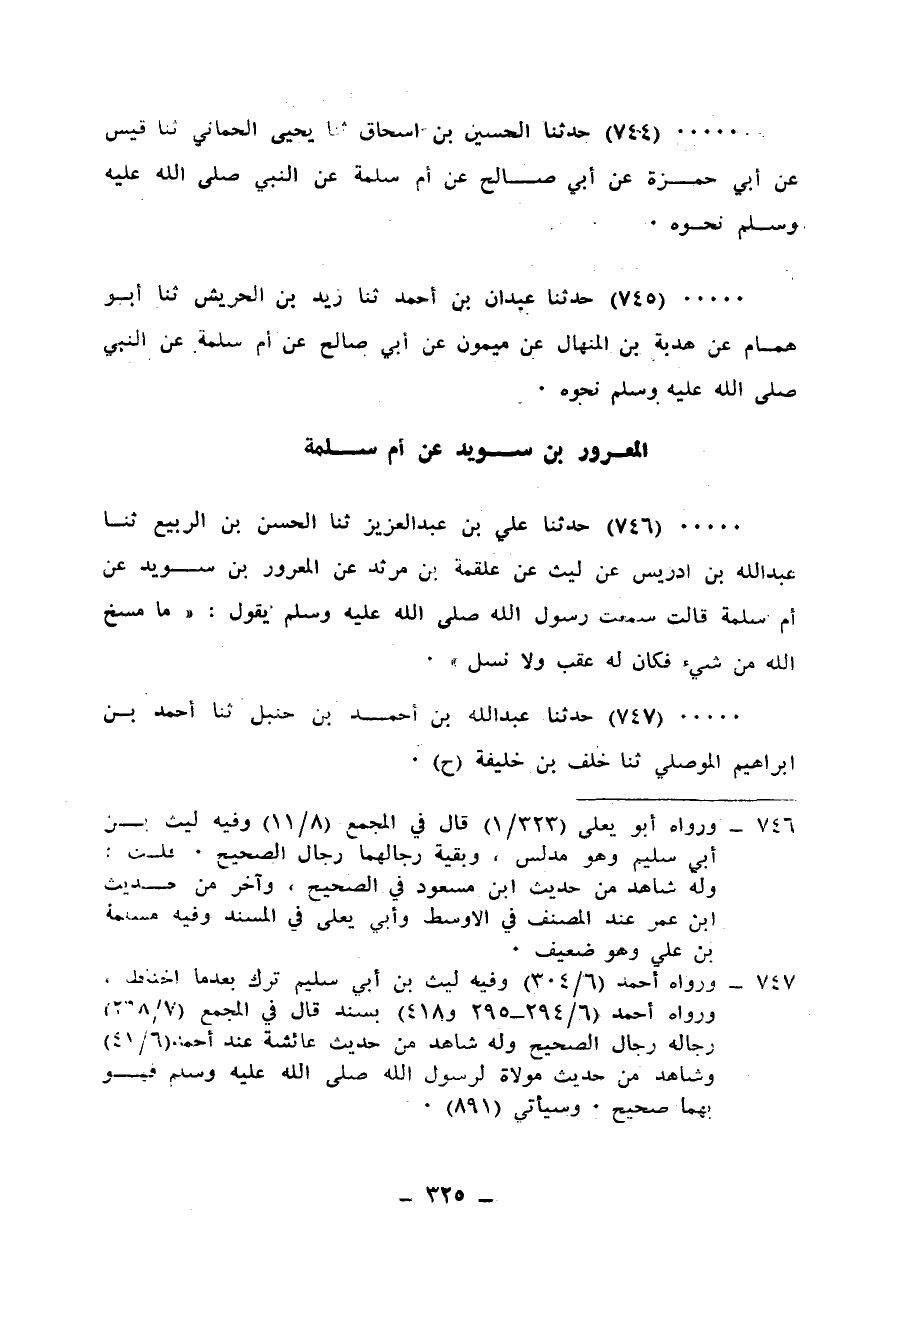 ..... (٧٤٤) حدثنا الحسين بن اسحاق ثنا يحيى الحماني ثنا قيس
عن أبي حمزة عن أبي صالح عن أم سلمة عن النبي صلى الله عليه
وسلم نحوه .
..... (٧٤٥) حدثنا عبدان بن أحمد ثنا زيد بن الحريش ثنا أبو
همام عن هدبة بن المنهال عن ميمون عن أبي صالح عن أم سلمة عن النبي
صلى الله عليه وسلم نحوه .
المعرور بن سويد عن أم سلمة
..... (٧٤٦) حدثنا علي بن عبدالعزيز ثنا الحسن بن الربيع ثنا
عبدالله بن ادريس عن ليث عن علقمة بن مرثد عن المعرور بن سويد عن
أم سلمة قالت سمعت رسول الله صلى الله عليه وسلم يقول : « ما مسخ
الله من شيء فكان له عقب ولا نسل » .
..... (٧٤٧) حدثنا عبدالله بن أحمد بن حنبل ثنا أحمد بن
ابراهيم الموصلي ثنا خلف بن خليفة (ح) .
٧٤٦ – ورواه أبو يعلى (١/٣٢٣) قال في المجمع (١١/٨) وفيه ليث بن
أبي سليم وهو مدلس ، وبقية رجالهما رجال الصحيح . قلت :
وله شاهد من حديث ابن مسعود في الصحيح ، وآخر من حديث
ابن عمر عند المصنف في الاوسط وأبي يعلى في المسند وفيه مسلمة
بن علي وهو ضعيف .
٧٤٧ – ورواه أحمد (٣٠٤/٦) وفيه ليث بن أبي سليم ترك بعدما اختلط ،
ورواه أحمد (٢٩٤/٦–٢٩٥ و٤١٨) بسند قال في المجمع
رجاله رجال الصحيح وله شاهد من حديث عائشة عند أحمد (٤١/٦)
وشاهد من حديث مولاة لرسول الله صلى الله عليه وسلم فهو
بهما صحيح . وسيأتي (٨٩١) .
– ٣٢٥ –